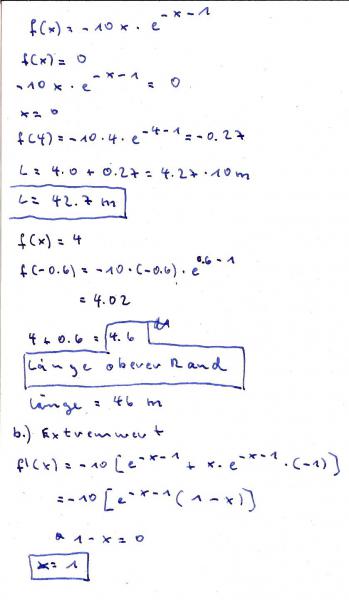 f(x) = -10x · e^{-x-1}
f(x) = 0
-10x · e^{-x-1} = 0
x = 0
f(4) = -10 · 4 · e^{-4-1} = -0.27
L = 4.0 + 0.27 = 4.27 · 10 m
L = 42.7 m
f(x) = 4
f(-0.6) = -10 · (-0.6) · e^{0.6-1}
= 4.02
4 + 0.6 = 4.6
Länge oberer Rand
Länge = 46 m
b.) Extremwert
f'(x) = -10 [e^{-x-1} + x · e^{-x-1} · (-1)]
= -10 [e^{-x-1} (1-x)]
1-x = 0
x = 1